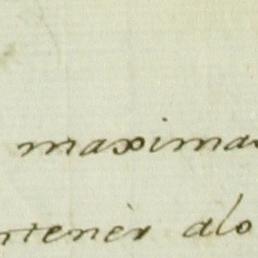 maximas
ntener alo